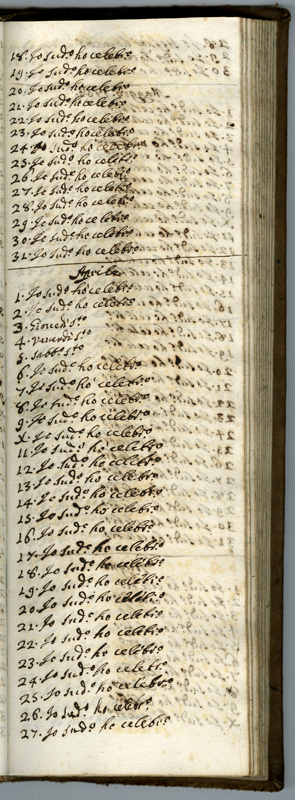 18. Io sud.o ho celebr.o
19. Io sud.o ho celebr.o
20. Io sud.o ho celebr.o
21. Io sud.o ho celebr.o
22. Io sud.o ho celebr.o
23. Io sud.o ho celebr.o
24. Io sud.o ho celebr.o
25. Io sud.o ho celebr.o
26. Io sud.o ho celebr.o
27. Io sud.o ho celebr.o
28. Io sud.o ho celebr.o
29. Io sud.o ho celebr.o
30. Io sud.o ho celebr.o
31. Io sud.o ho celebr.o
Aprile
1. Io sud.o ho celebr.o
2. Io sud.o ho celebr.o
3. Giovedì S.to
4. Venerdì S.to
5. Sabb.o S.to
6. Io sud.o ho celebr.o
7. Io sud.o ho celebr.o
8. Io sud.o ho celebr.o
9. Io sud.o ho celebr.o
X. Io sud.o ho celebr.o
11. Io sud.o ho celebr.o
12. Io sud.o ho celebr.o
13. Io sud.o ho celebr.o
14. Io sud.o ho celebr.o
15. Io sud.o ho celebr.o
16. Io sud.o ho celebr.o
17. Io sud.o ho celebr.o
18. Io sud.o ho celebr.o
19. Io sud.o ho celebr.o
20. Io sud.o ho celebr.o
21. Io sud.o ho celebr.o
22. Io sud.o ho celebr.o
23. Io sud.o ho celebr.o
24. Io sud.o ho celebr.o
25. Io sud.o ho celebr.o
26. Io sud.o ho celebr.o
27. Io sud.o ho celebr.o